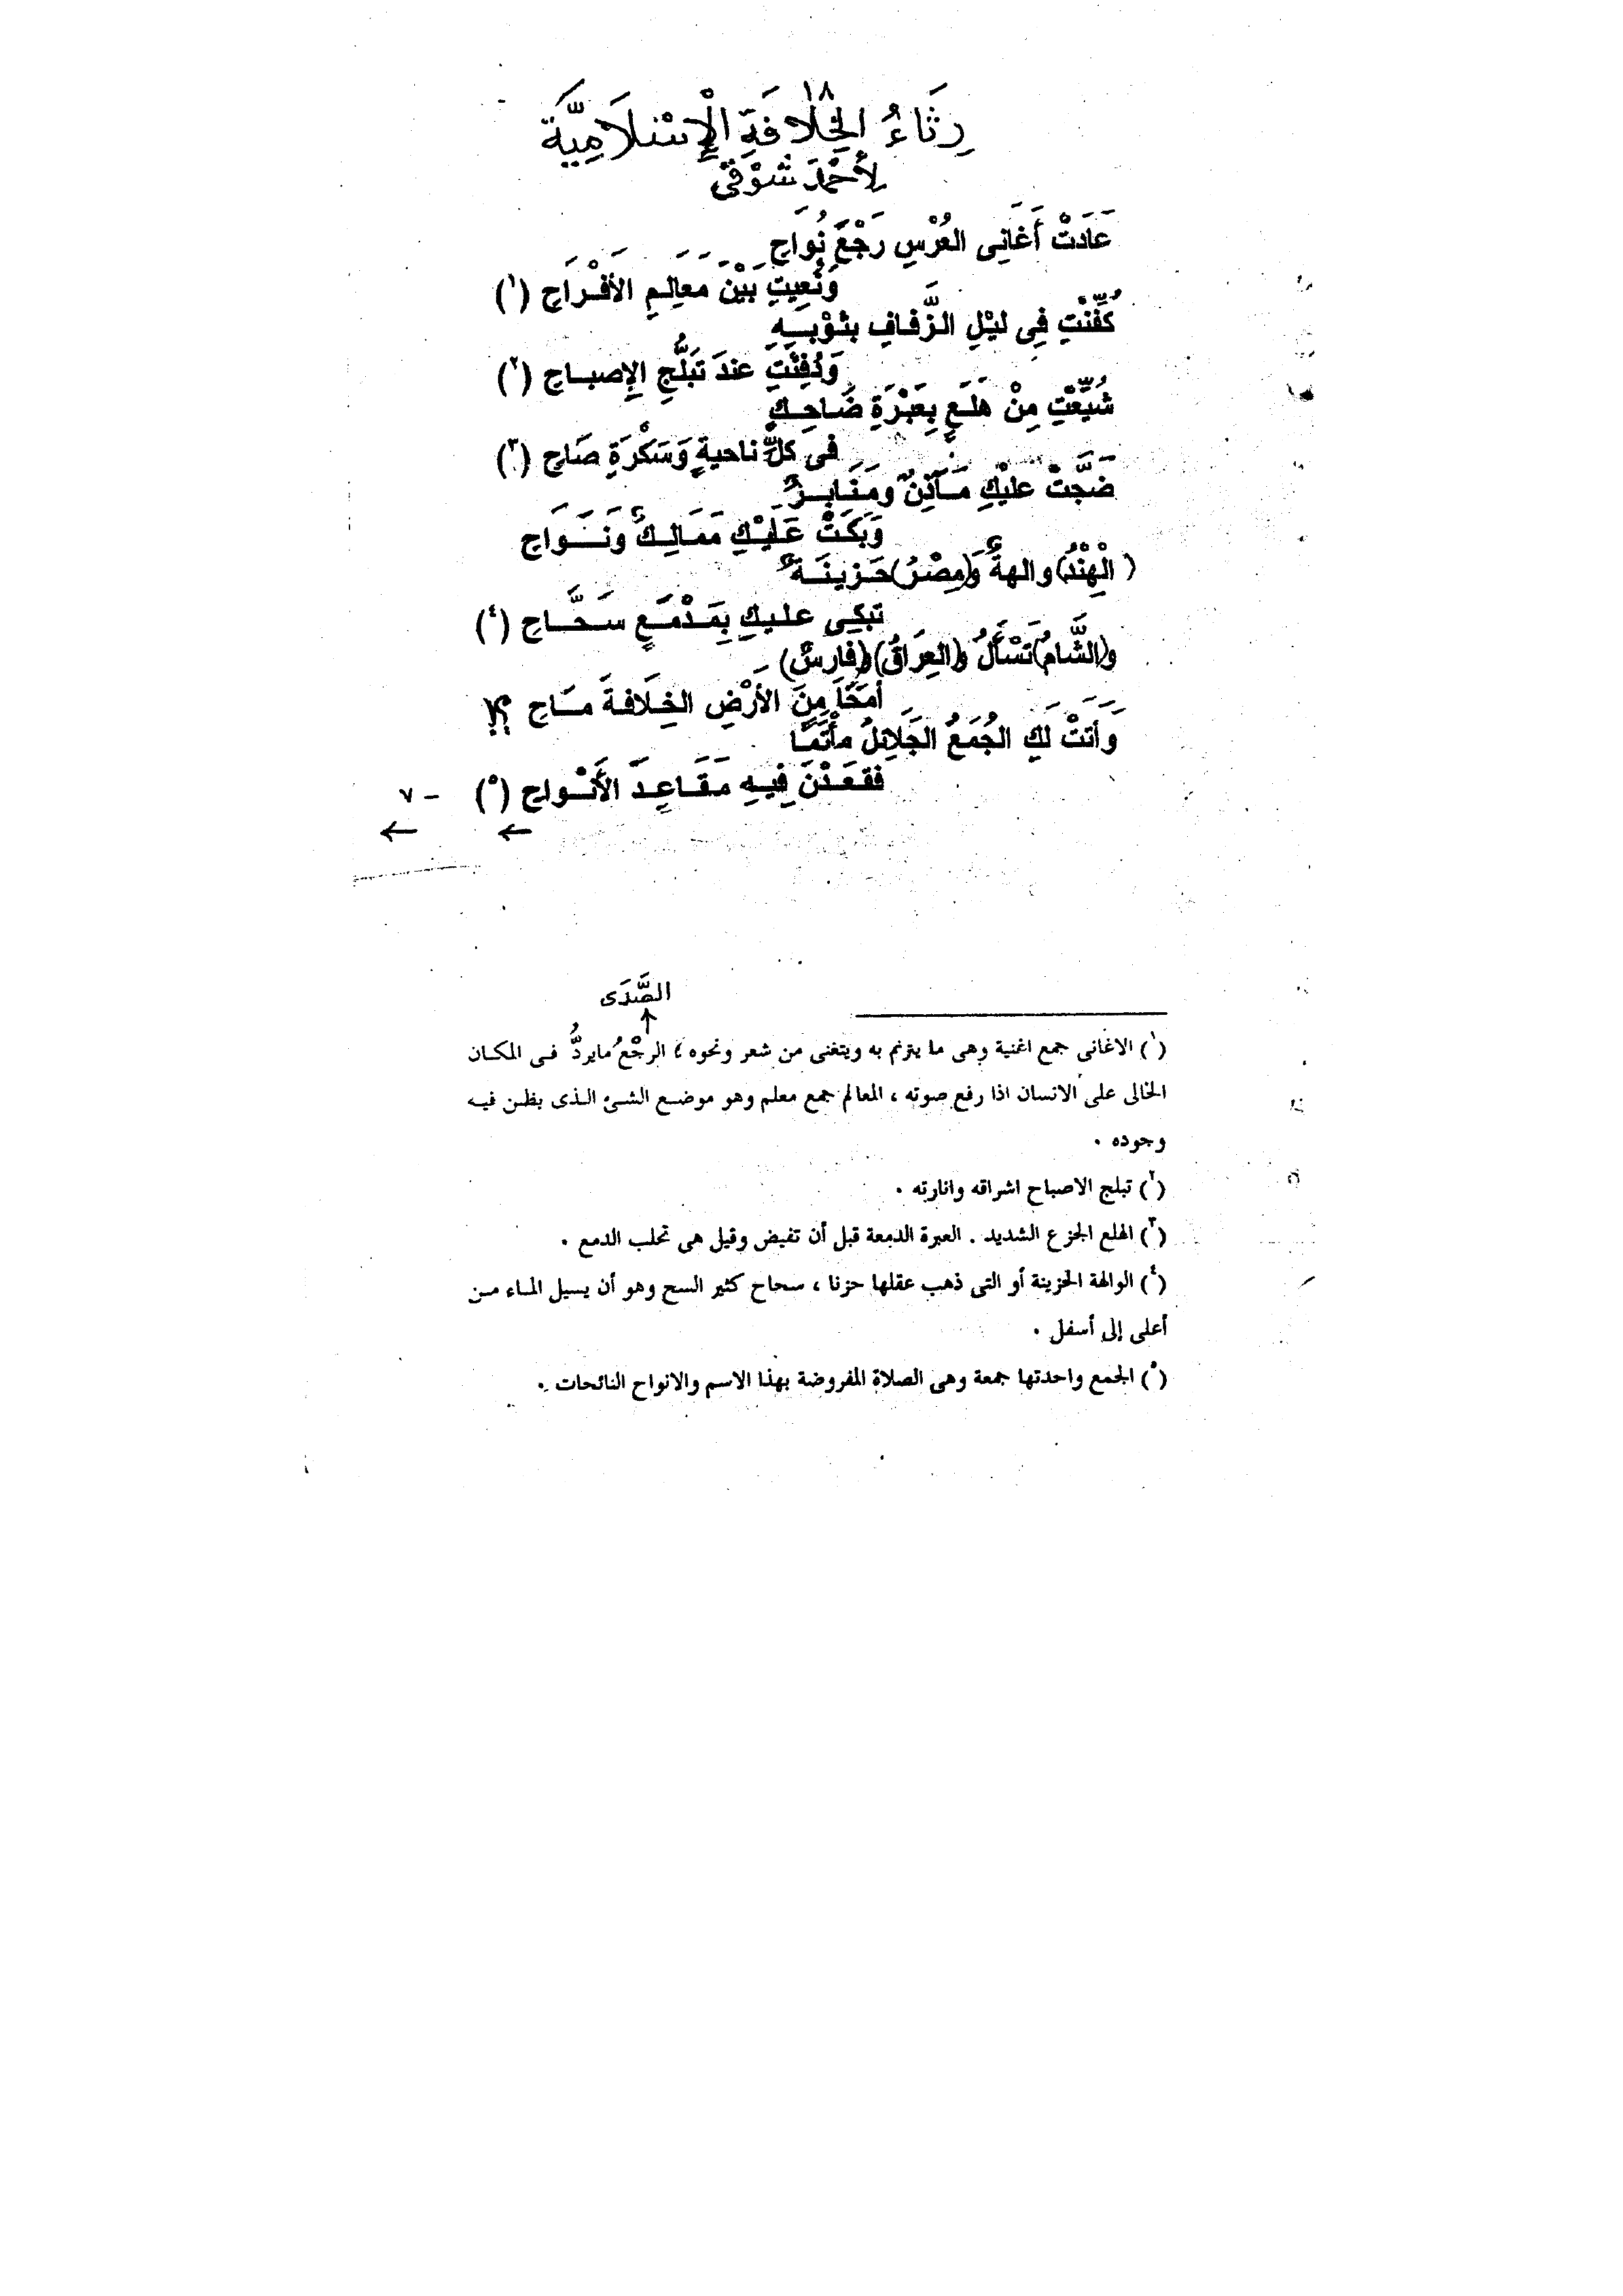 ١٨
رِثَاءُ الخِلَافَةِ الْإِسْلَامِيَّة
لِأَحْمَدَ شَوْقِى
عَادَتْ أَغَانِى العُرْسِ رَجْعَ نُوَاحِ
وَنُعِيتِ بَيْنَ مَعَالِمِ الأَفْرَاحِ (١)
كُفِّنْتِ فِى لَيْلِ الزَّفَافِ بثَوْبِهِ
وَدُفِنْتِ عندَ تَبَلُّجِ الإصباحِ (٢)
شُيِّعْتِ مِنْ هَلَعٍ بِعَبْرَةِ ضَاحِكٍ
فى كلِّ ناحيةٍ وَسَكْرَةِ صَاحِ (٣)
ضَجَّتْ عليْكِ مَآذِنٌ ومَنَابِرٌ
وَبَكَتْ عَلَيْكِ مَمَالِكٌ ونَوَاحِ
(الْهِنْدُ) والهةٌ و(مِصْرُ) حَزينَةٌ
تبكِى عليكِ بِمَدْمَعٍ سَحَّاحِ (٤)
و(الشَّامُ) تَسْأَلُ و(العِرَاقُ) و(فارِسٌ)
أمَحَا مِنَ الأَرْضِ الخِلَافةَ مَاحِ ؟!
وَأتتْ لَكِ الجُمَعُ الجَلَائِلُ مأْتَمًا
فقعَدْنَ فِيهِ مَقَاعِدَ الأَنْواحِ (٥) - ٧
← ←
الصَّدَى
↑
(١) الاغانى جمع اغنية وهى ما يترنم به ويتغنى من شعر ونحوه ؛ الرجْعُ مايردُّ فى المكان
الخالى على الانسان اذا رفع صوته ، المعالم جمع معلم وهو موضع الشئ الذى يظن فيه
وجوده .
(٢) تبلج الاصباح اشراقه وانارته .
(٣) الهلع الجزع الشديد . العبرة الدمعة قبل أن تفيض وقيل هى تحلب الدمع .
(٤) الوالهة الحزينة أو التى ذهب عقلها حزنا ، سحاح كثير السح وهو أن يسيل الماء من
أعلى إلى أسفل .
(٥) الجمع واحدتها جمعة وهى الصلاة المفروضة بهذا الاسم والانواح النائحات .